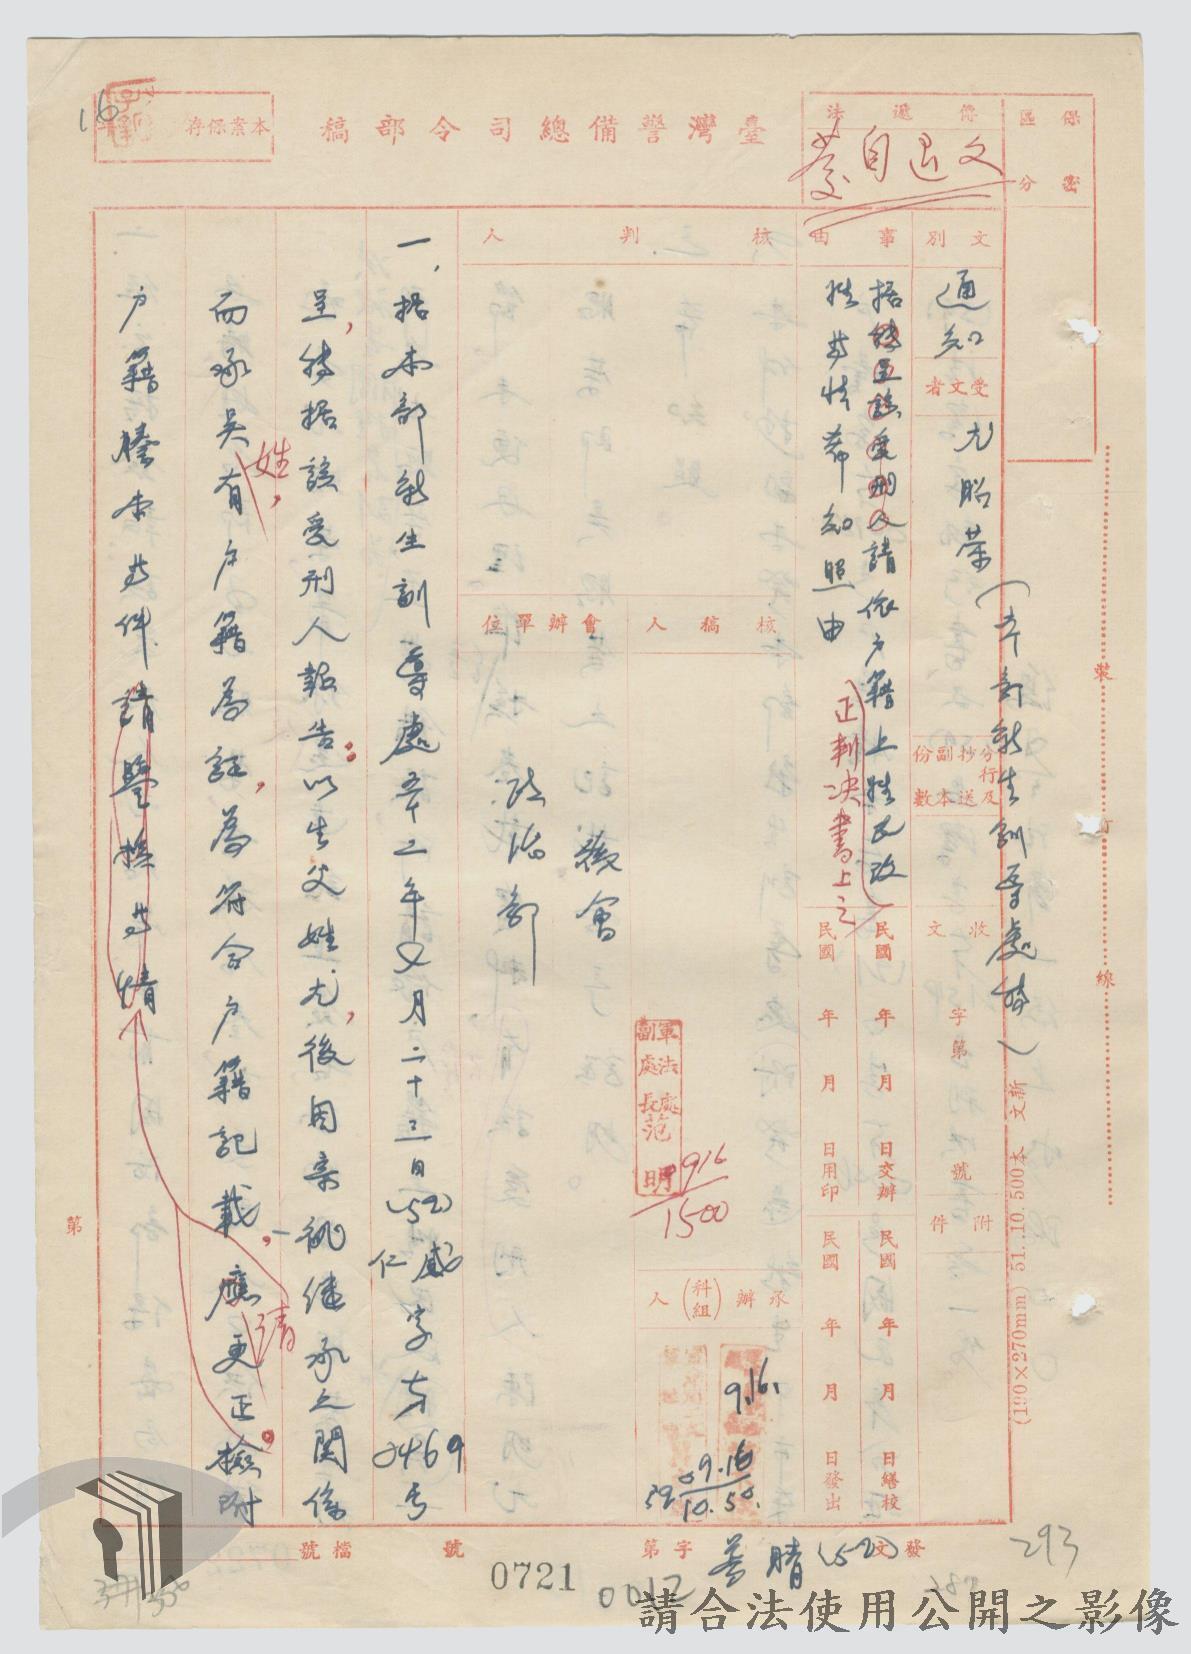 保密
區分
傳遞法
臺灣警備總司令部稿
本案保存
16
文別
通知
受文者
尤昭榮
新生訓導處
事由
請依戶籍上姓氏改
正判決書上之
姓等情希知照由
分行及
抄送
副本
份數
收文
字第
號
附件
民國 年 月 日交辦
民國 年 月 日繕校
民國 年 月 日用印
民國 年 月 日發出
核判人
核稿人
會辦單位
政治部
承辦(科組)人
軍法處
副處長
范明
916
1500
9.16.
09.16
10.50.
一、據本部新生訓導處五十二年 月二十三日(52)仁感字第2469號
呈,轉據該受刑人報告:以生父姓尤,後因 祧繼承之關係
而承吳姓,有戶籍為証,為符合戶籍記載,應請更正。檢附
戶籍謄本等件請鑒核等情
裝
訂
線
(190×270mm) 51. 10. 500本 文新
第
發文
字第
號
檔號
(52)
0012
0721
293
請合法使用公開之影像